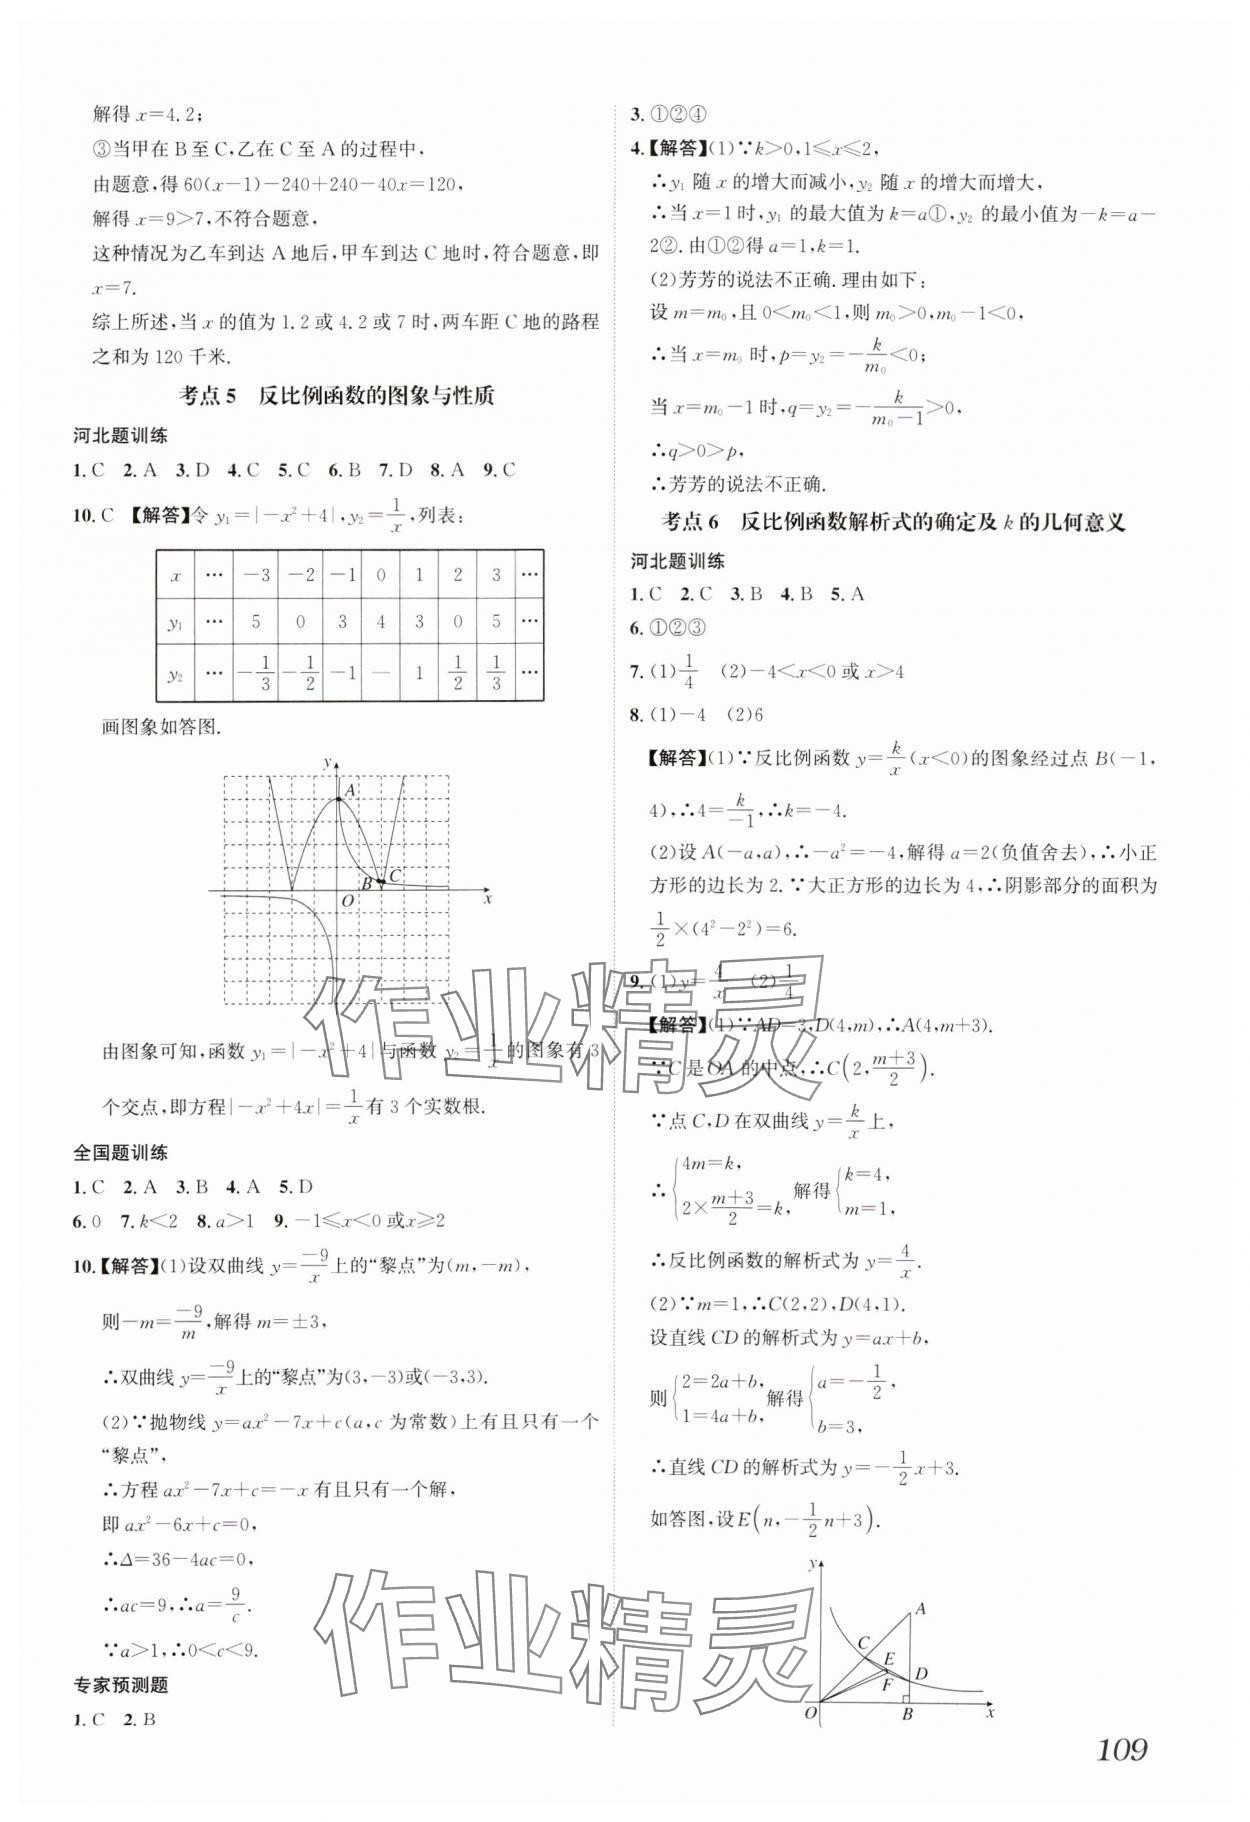 解得 x=4.2;
③当甲在 B 至 C,乙在 C 至 A 的过程中,
由题意,得 60(x-1)-240+240-40x=120,
解得 x=9>7,不符合题意,
这种情况为乙车到达 A 地后,甲车到达 C 地时,符合题意,即
x=7.
综上所述,当 x 的值为 1.2 或 4.2 或 7 时,两车距 C 地的路程
之和为 120 千米.
考点 5 反比例函数的图象与性质
河北题训练
1. C 2. A 3. D 4. C 5. C 6. B 7. D 8. A 9. C
10. C 【解答】令 y₁=|-x²+4|,y₂=1/x,列表:
x … -3 -2 -1 0 1 2 3 …
y₁ … 5 0 3 4 3 0 5 …
y₂ … -1/3 -1/2 -1 — 1 1/2 1/3 …
画图象如答图.
y
A
B C
O x
由图象可知,函数 y₁=|-x²+4|与函数 y₂=1/x的图象有 3
个交点,即方程|-x²+4x|=1/x有 3 个实数根.
全国题训练
1. C 2. A 3. B 4. A 5. D
6. 0 7. k<2 8. a>1 9. -1≤x<0 或x≥2
10.【解答】(1)设双曲线 y=-9/x上的“黎点”为(m,-m),
则-m=-9/m,解得 m=±3,
∴双曲线 y=-9/x上的“黎点”为(3,-3)或(-3,3).
(2)∵抛物线 y=ax²-7x+c(a,c 为常数)上有且只有一个
“黎点”,
∴方程 ax²-7x+c=-x 有且只有一个解,
即 ax²-6x+c=0,
∴Δ=36-4ac=0,
∴ac=9,∴a=9/c.
∵a>1,∴0<c<9.
专家预测题
1. C 2. B
3. ①②④
4.【解答】(1)∵k>0,1≤x≤2,
∴y₁ 随 x 的增大而减小,y₂ 随 x 的增大而增大,
∴当 x=1 时,y₁ 的最大值为 k=a①,y₂ 的最小值为-k=a-
2②.由①②得 a=1,k=1.
(2)芳芳的说法不正确.理由如下:
设 m=m₀,且 0<m₀<1,则 m₀>0,m₀-1<0,
∴当 x=m₀ 时,p=y₂=-k/m₀<0;
当 x=m₀-1 时,q=y₂=-k/(m₀-1)>0,
∴q>0>p,
∴芳芳的说法不正确.
考点 6 反比例函数解析式的确定及 k 的几何意义
河北题训练
1. C 2. C 3. B 4. B 5. A
6. ①②③
7. (1)1/4 (2)-4<x<0 或 x>4
8. (1)-4 (2)6
【解答】(1)∵反比例函数 y=k/x(x<0)的图象经过点 B(-1,
4),∴4=k/-1,∴k=-4.
(2)设 A(-a,a),∴-a²=-4,解得 a=2(负值舍去),∴小正
方形的边长为 2.∵大正方形的边长为 4,∴阴影部分的面积为
1/2×(4²-2²)=6.
9. (1)y=4/x (2)1/4
【解答】(1)∵AD=3,D(4,m),∴A(4,m+3).
∵C 是 OA 的中点,∴C(2,(m+3)/2).
∵点 C,D 在双曲线 y=k/x上,
∴{4m=k, 2×(m+3)/2=k, 解得{k=4, m=1,
∴反比例函数的解析式为 y=4/x.
(2)∵m=1,∴C(2,2),D(4,1).
设直线 CD 的解析式为 y=ax+b,
则{2=2a+b, 1=4a+b, 解得{a=-1/2, b=3,
∴直线 CD 的解析式为 y=-1/2x+3.
如答图,设E(n,-1/2n+3).
y
A
C
E
D
F
O B x
109
作业精灵
作业精灵